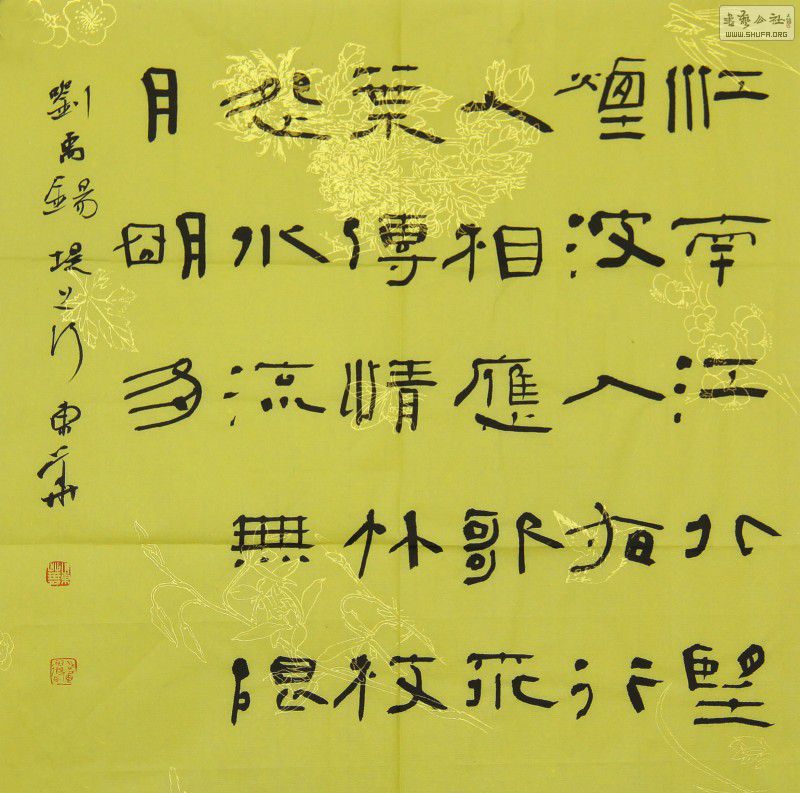 江南江北望
煙波入夜行
人相應歌桃
葉傳情竹枝
怨水流無限
月明多
劉禹錫堤上行 東華
書藝公社
WWW.SHUFA.ORG